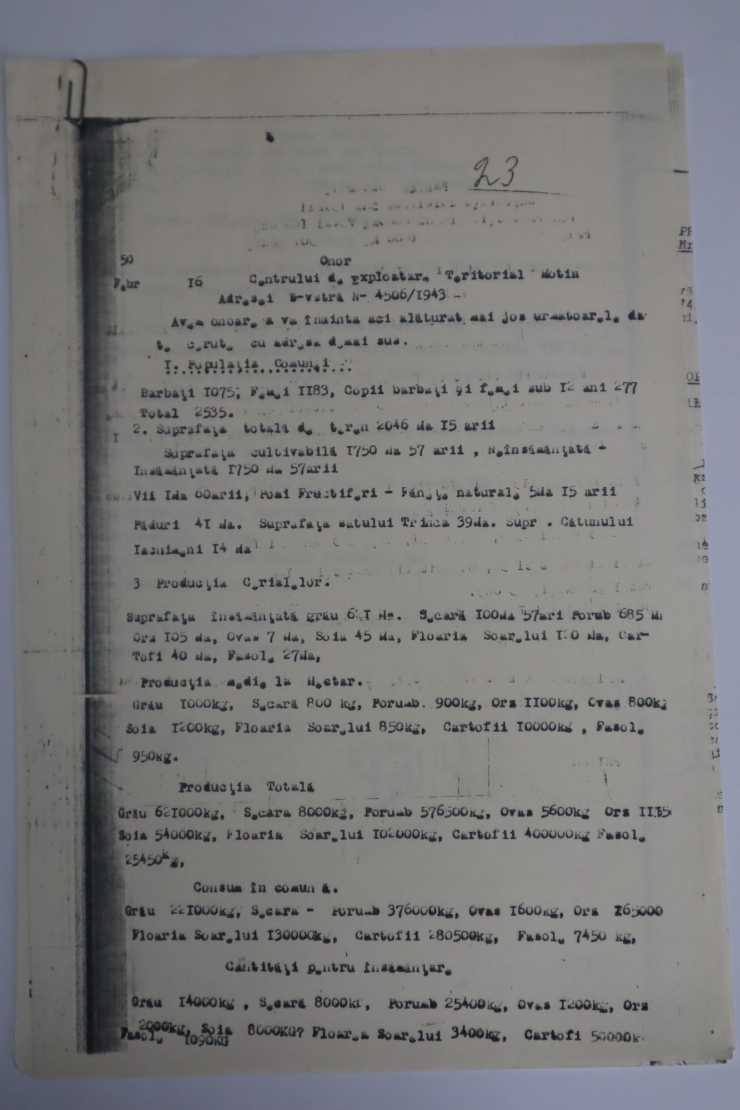 23
50
Onor
Febr 16 Centrului de Exploatare Teritorial Hotin
Adresei D-vstră N- 4506/1943 -
Avem onoare a va înainta aci alăturat mai jos urmatoarele da
te cerute cu adresa demai sus.
I. Populația Comunei
Barbați I075; Femei II83, Copii barbați și femei sub I2 ani 277
Total 2535.
2. Suprafața totală de teren 2046 Ha I5 arii
Suprafața cultivabilă I750 Ha 57 arii , Neînsămânțată -
Insămânțată I750 Ha 57arii
Vii IHa 60arii, Pomi Fructiferi - Fânețe naturale 5Ha I5 arii
Păduri 4I Ha. Suprafața satului Trinca 39Ha. Supr . Cătunului
Iachimeni I4 Ha
3 Producția Cerialelor.
Suprafața însămânțată grâu 621 Ha. Secară I00Ha 57ari Porub 685 H
Orz I05 Ha, Ovas 7 Ha, Soia 45 Ha, Floaria Soarelui I20 Ha, Car-
Tofi 40 Ha, Fasole 27Ha,
Producția medie la Hectar.
Grâu I000kg, Secară 800 kg, Porumb. 900kg, Orz II00kg, Ovas 800kg
Soia I200kg, Floaria Soarelui 850kg, Cartofii I0000kg , Fasole
950kg.
Producția Totală
Grâu 621000kg, Secara 8000kg, Porumb 576500kg, Ovas 5600kg Orz
Soia 54000kg, Floaria Soarelui I02000kg, Cartofii 400000kg Fasole
25450kg,
Consum în comun ă.
Grâu 221000kg, Secara - Porumb 376000kg, Ovas I600kg, Orz I65000
Floaria Soarelui I30000kg, Cartofii 280500kg, Fasole 7450 kg,
Cantități pentru Însămânțare
Grâu I4000kg , Secară 8000kg, Porumb 25400kg, Ovas I200kg, Orz
2000kg, Soia 8000KG? Floarea Soarelui 3400kg, Cartofi 50000k
Fasole I090KG